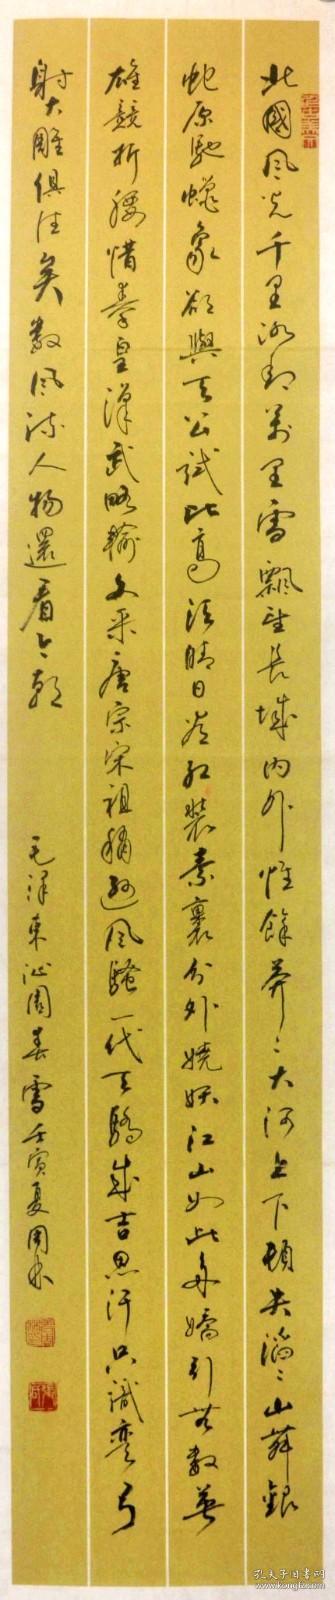 北國風光千里冰封萬里雪飄望長城内外惟餘莽〻大河上下頓失滔〻山舞銀
蛇原馳蠟象欲與天公試比高須晴日看紅裝素裹分外嬈妖江山如此多嬌引無數英
雄競折腰惜秦皇漢武略輸文采唐宗宋祖稍遜風騷一代天驕成吉思汗只識彎弓
射大雕俱往矣數風流人物還看今朝
毛澤東沁園春雪壬寅夏周
孔夫子旧书网